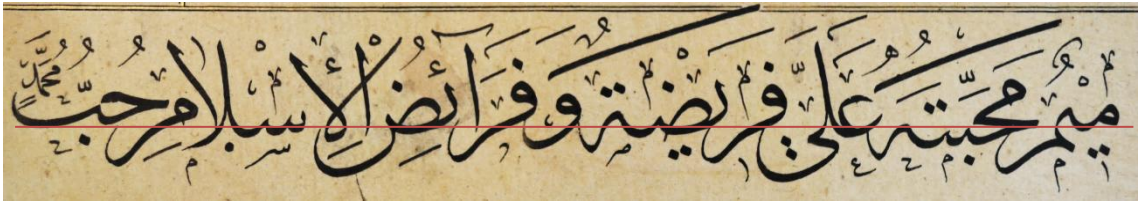 مِيْمُ مَحَبَّتُهُ عَلَيَّ فَرِيْضَةٌ وَفَرَائِضُ الْإِسْلَامِ حُبُّ مُحَمَّدٍ